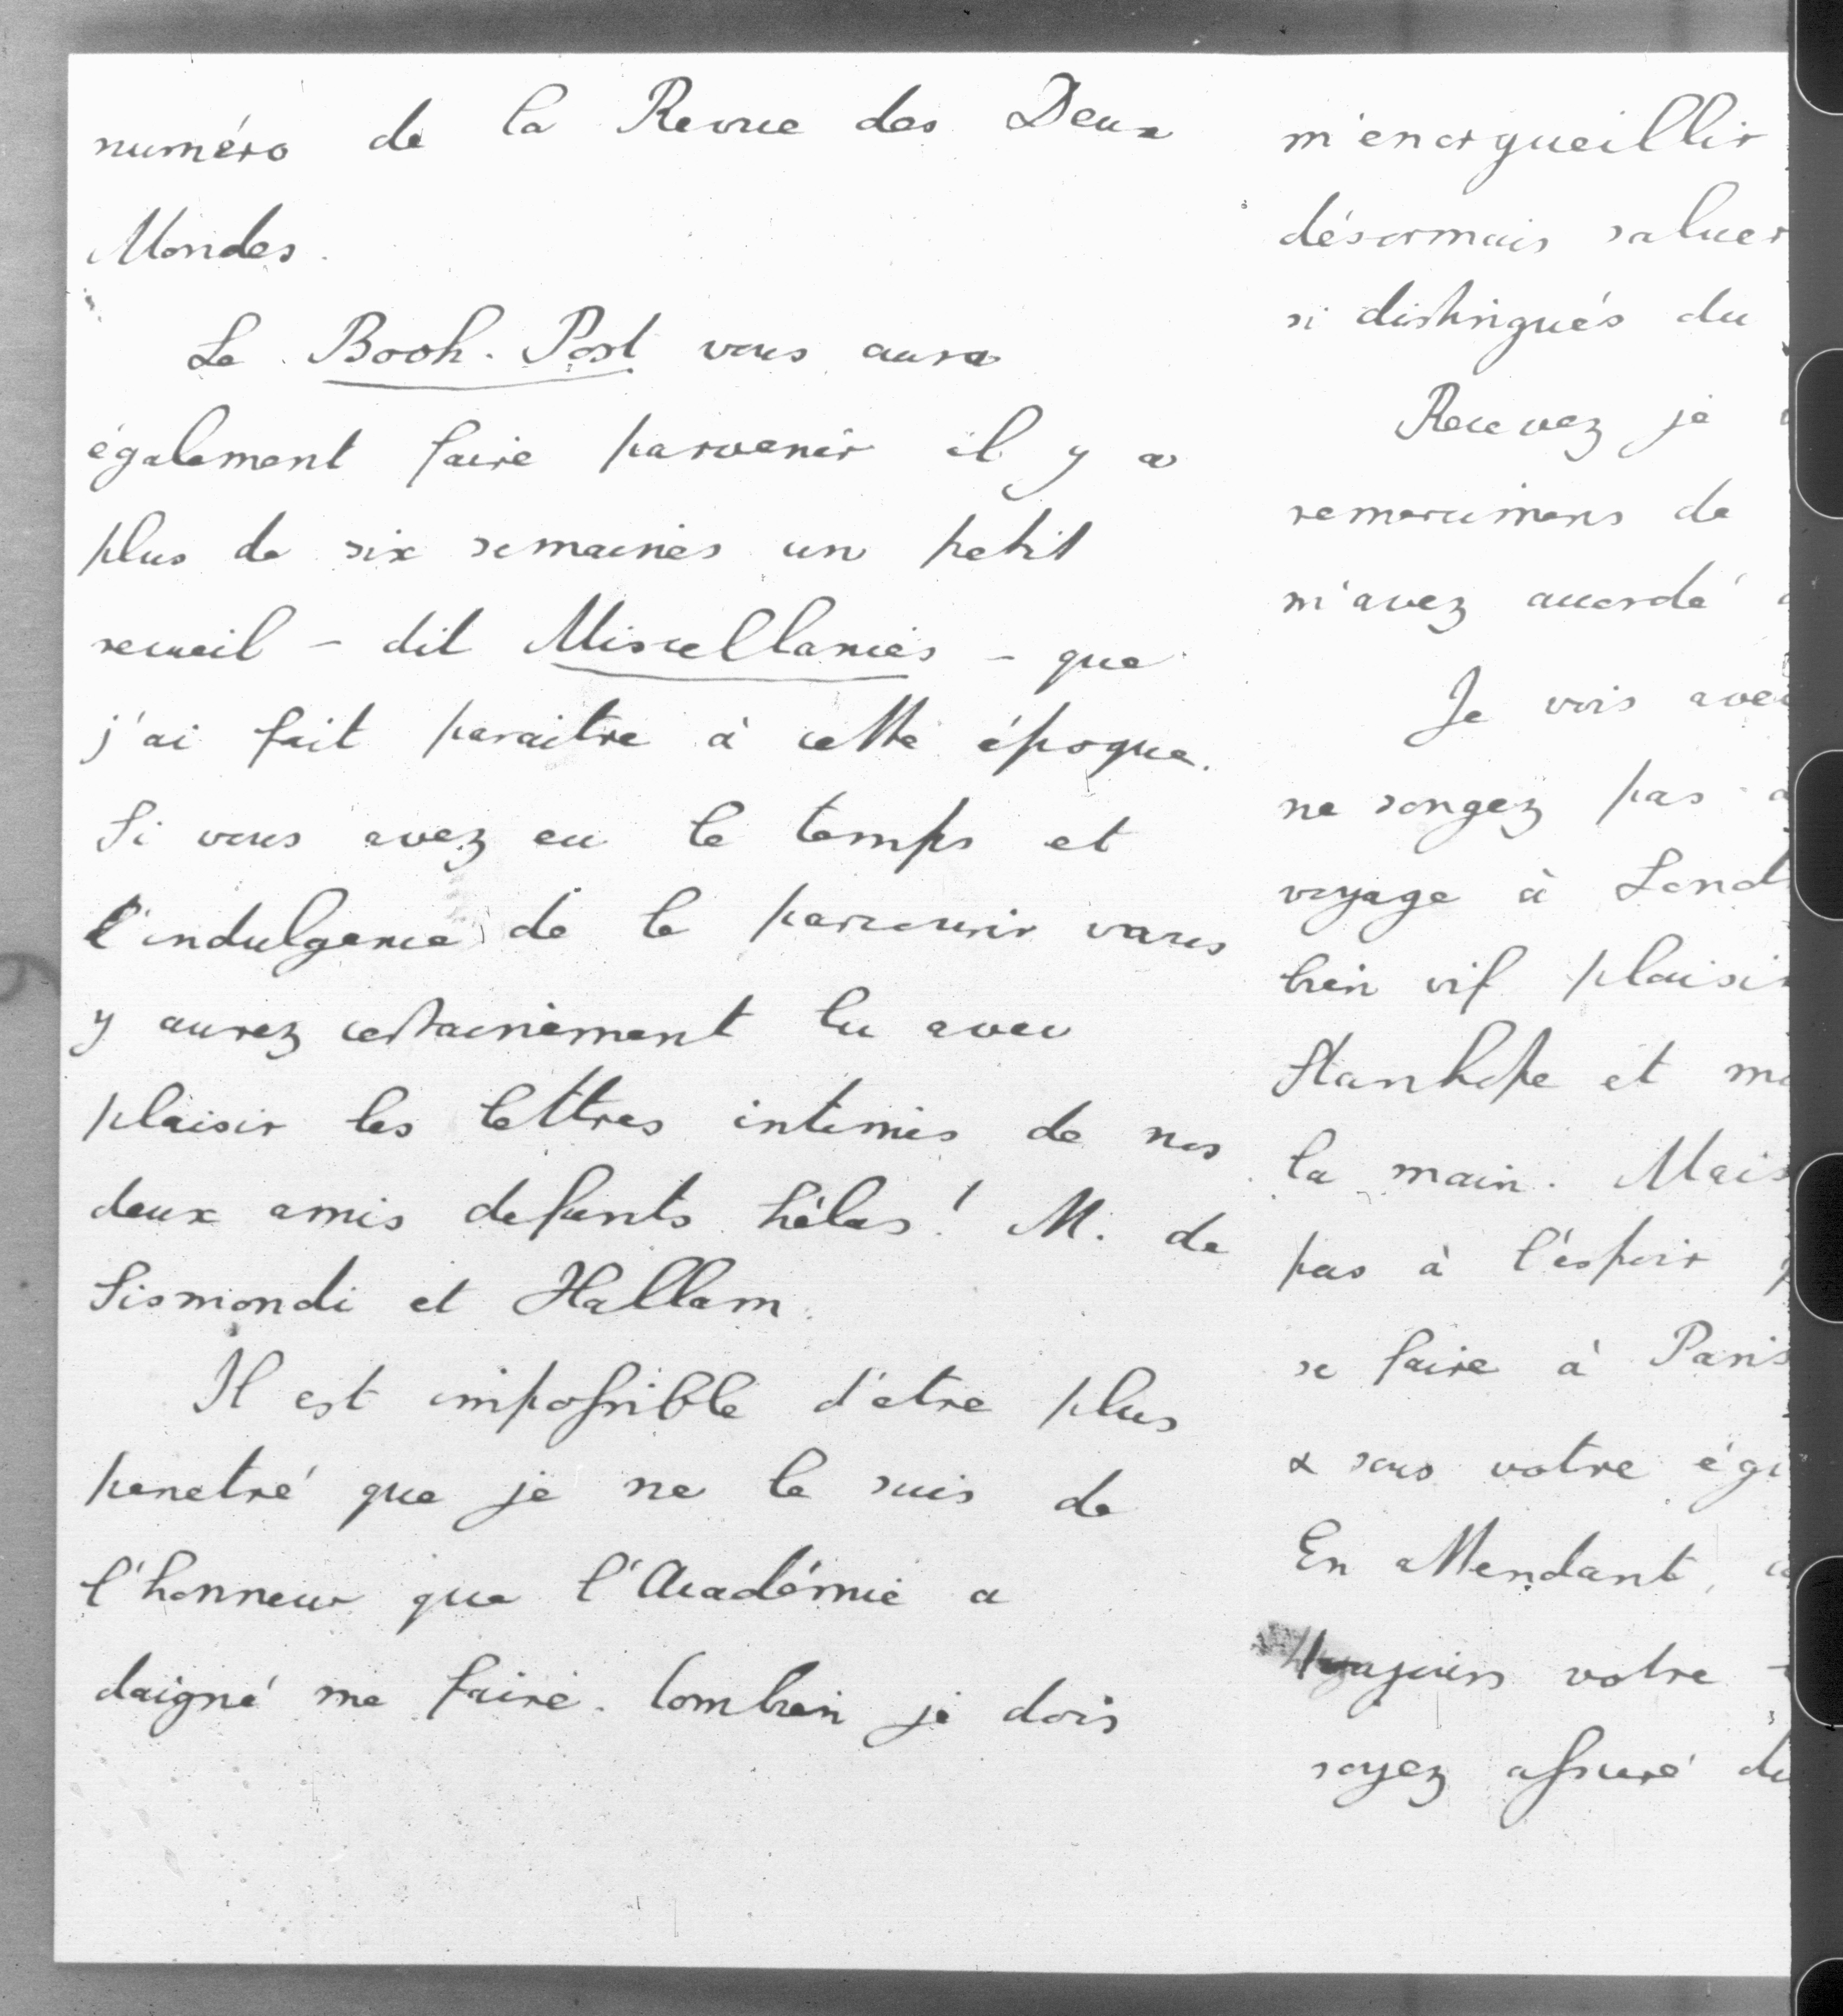 numéro de la Revue des Deux
Mondes.
Le Book-Post vous aura
également faire parvenir il y a
plus de six semaines un petit
recueil – dit Miscellanies – que
j'ai fait paraitre à cette époque.
Si vous avez eu le temps et
l'indulgence de le parcourir vous
y aurez certainement lu avec
plaisir les lettres intimes de nos
deux amis defunts hélas! M. de
Sismondi et Hallam.
Il est impossible d'etre plus
penetré que je ne le suis de
l'honneur que l'Académie a
daigné me faire. Combien je dois
m'enorgueillir
désormais saluer
si distingués du
Recevez je
remercimens de
m'avez accordé
Je vois avec
ne songez pas
voyage à Lond
bien vif plaisir
Stanhope et
la main. Mais
pas à l'espoir
se faire à Paris
& sous votre
En attendant,
votre
soyez assuré